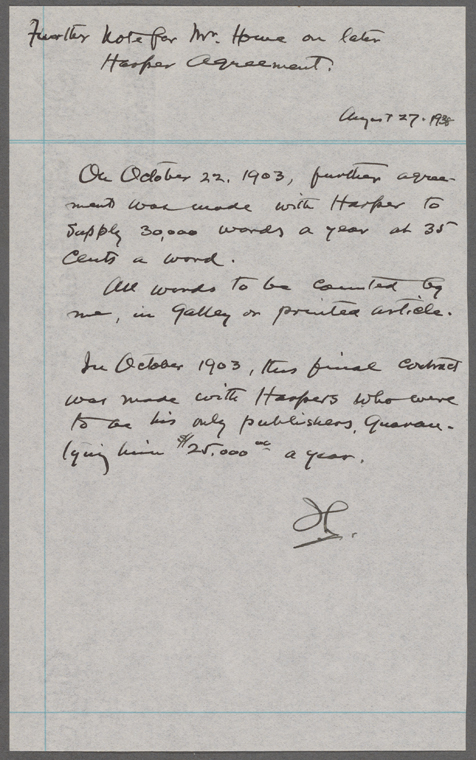 Further Note for Mr. Howe on later
Harper Agreement.
August 27. 1938
On October 22. 1903, further agree-
ment was made with Harper to
supply 30,000 words a year at 35
cents a word.
All words to be counted by
me, in Galley or printed article.
In October 1903, this final contract
was made with Harpers who were
to be his only publishers, Guaran-
tying him $25.000 00 a year.